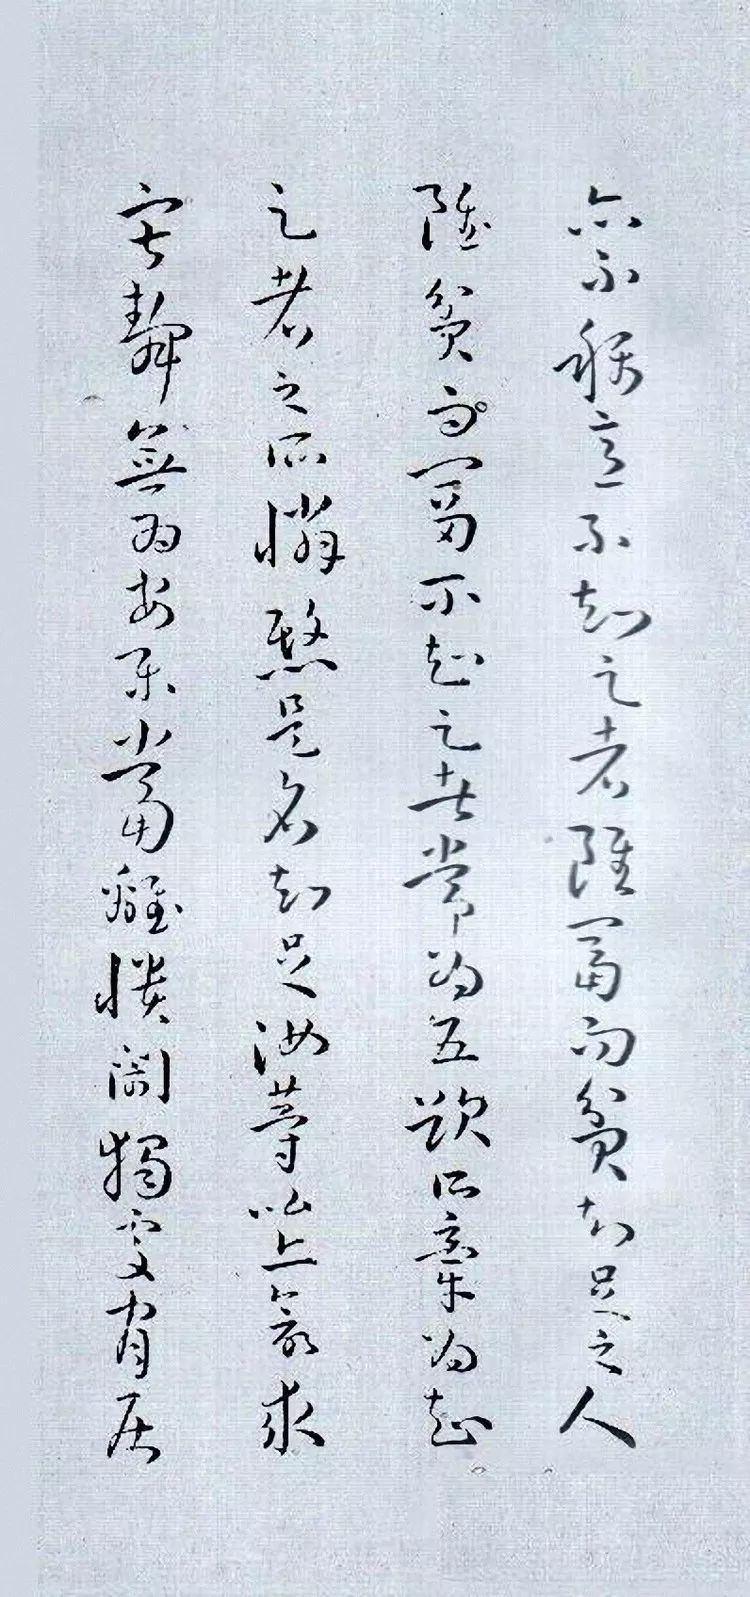 亦不稱意不知足者雖富而貧知足之人
雖貧而富不知足者常為五欲所牽為知
足者之所憐愍是名知足汝等比丘欲求
寂靜無為安樂當離憒閙獨處閑居